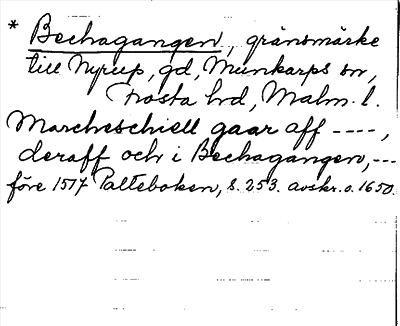 * Bechagangen, gränsmärke
till Nyrup, gd, Munkarps sn,
Frosta hd, Malm. l.
Marcheschiell gaar aff ----,
deraff och i Bechagangen, ---
före 1517 Palteboken, s. 253. avskr. o. 1650.